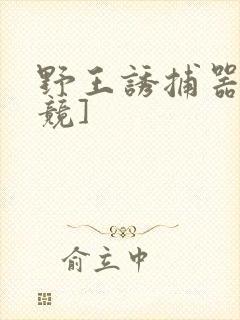 野王誘捕器
競]
俞立中